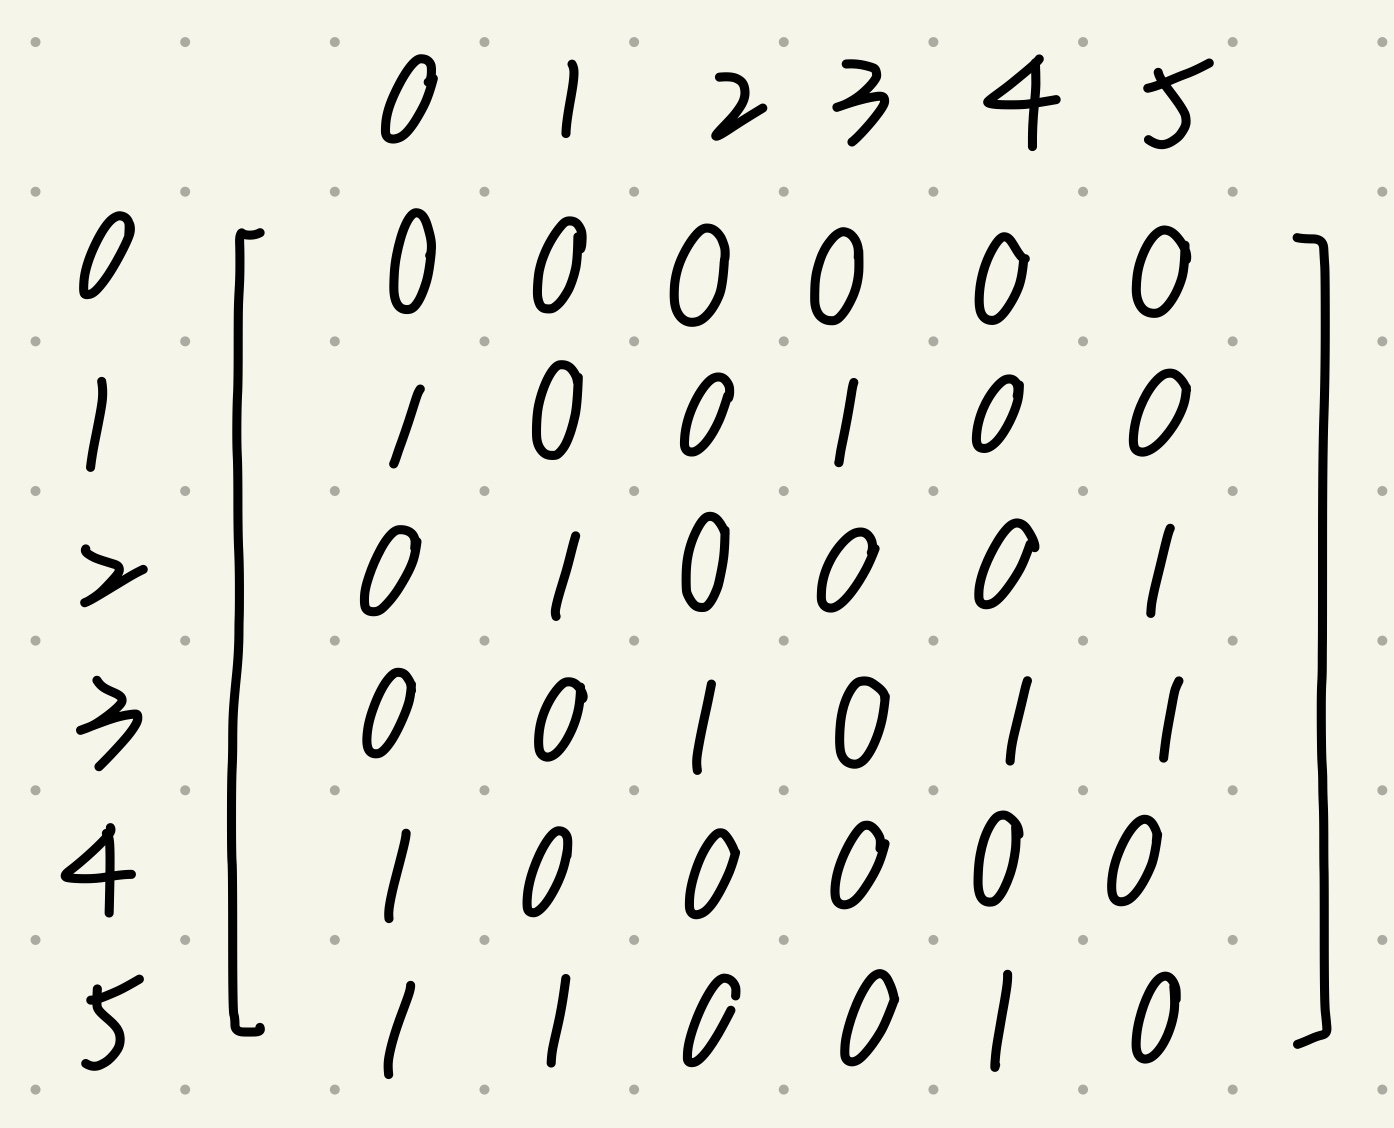 0 1 2 3 4 5
0 [ 0 0 0 0 0 0 ]
1 [ 1 0 0 1 0 0 ]
2 [ 0 1 0 0 0 1 ]
3 [ 0 0 1 0 1 1 ]
4 [ 1 0 0 0 0 0 ]
5 [ 1 1 0 0 1 0 ]